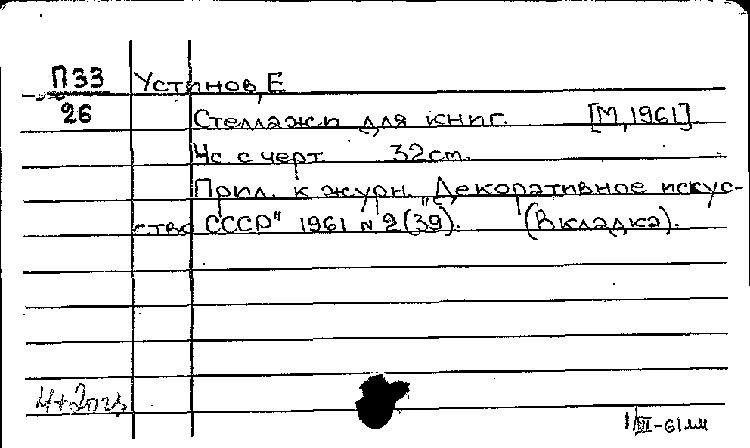 П33 Устинов, Е
26 Стеллажи для книг. [М, 1961].
4с с черт. 32 cm.
Прил. к журн. "Декоративное искус-
ство СССР" 1961 № 2 (39). (Вкладка).
1/III-61